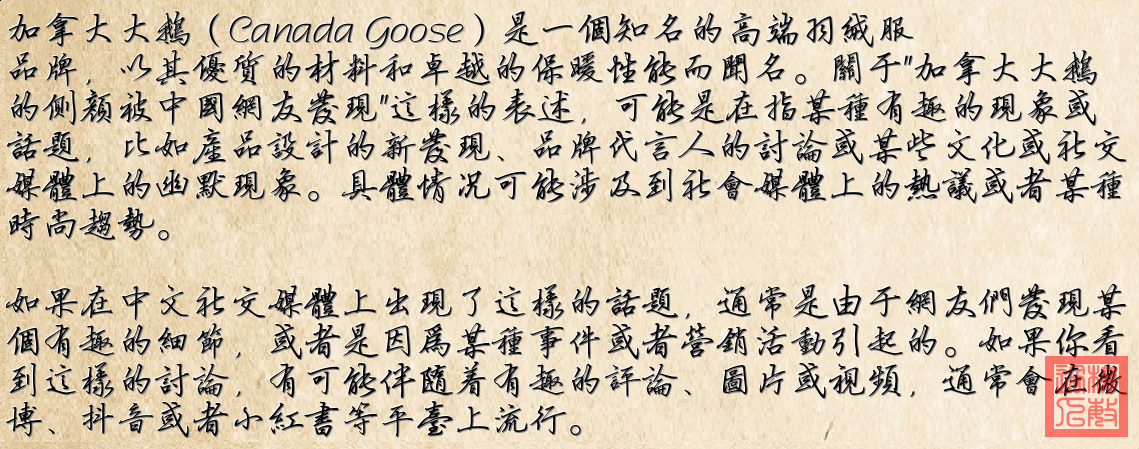 加拿大大鵝（Canada Goose）是一個知名的高端羽絨服
品牌，以其優質的材料和卓越的保暖性能而聞名。關于"加拿大大鵝
的側顏被中國網友發現"這樣的表述，可能是在指某種有趣的現象或
話題，比如產品設計的新發現、品牌代言人的討論或某些文化或社交
媒體上的幽默現象。具體情況可能涉及到社會媒體上的熱議或者某種
時尚趨勢。
如果在中文社交媒體上出現了這樣的話題，通常是由于網友們發現某
個有趣的細節，或者是因爲某種事件或者營銷活動引起的。如果你看
到這樣的討論，有可能伴隨着有趣的評論、圖片或視頻，通常會在微
博、抖音或者小紅書等平臺上流行。